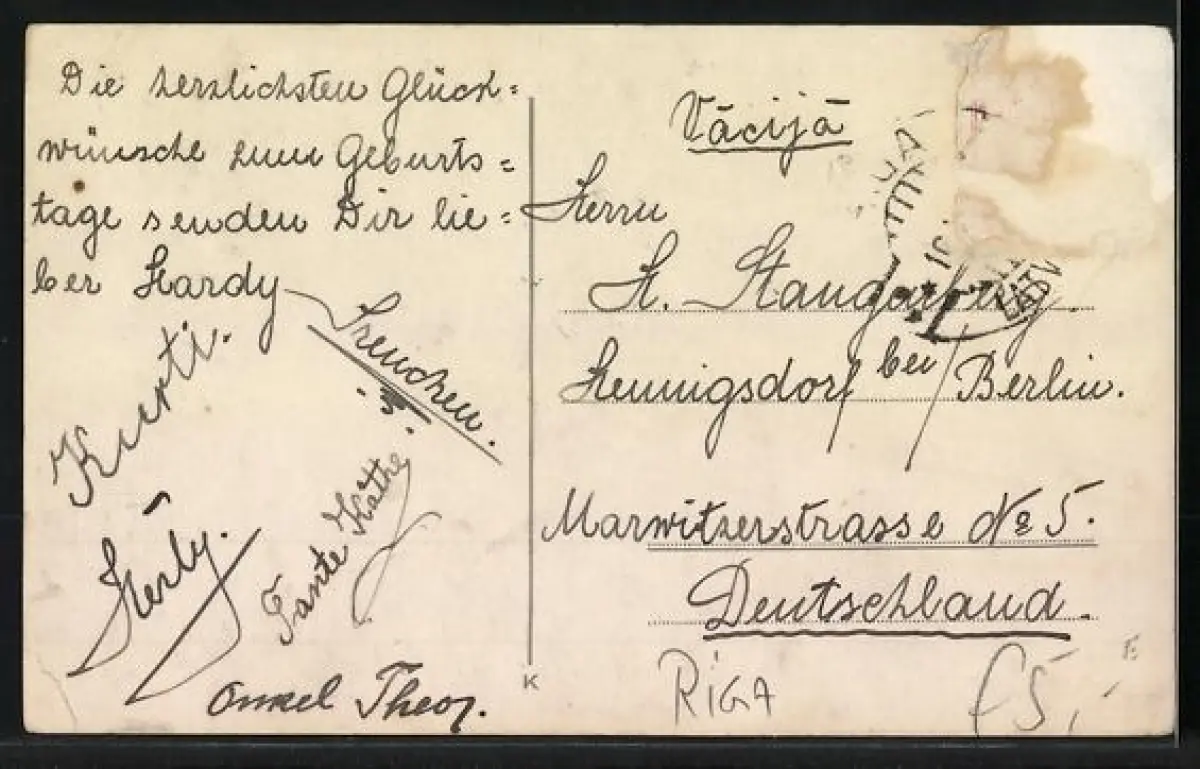 Die herzlichsten Glück-
wünsche zum Geburts-
tage senden Dir lie-
ber Hardy
Irenchen.
Kurti.
Herly.
Tante Käthe,
Onkel Theo,.
Vācijā
Herrn
H. Staugaberg.
Hennigsdorf bei Berlin.
Marwitzerstrasse No 5.
Deutschland.
RIGA
K